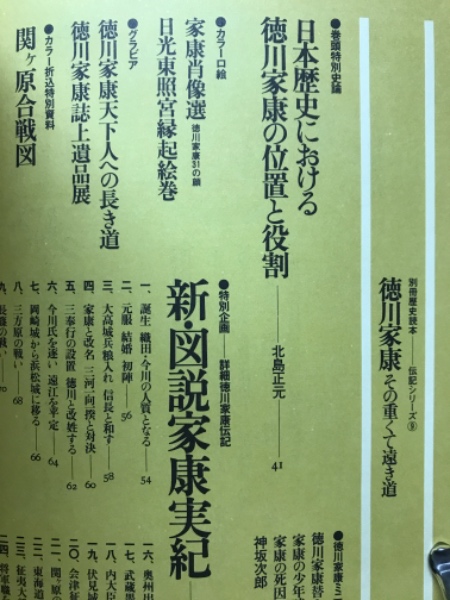 別冊歴史読本——伝記シリーズ⑨
徳川家康 その重くて遠き道
●巻頭特別史論
日本歴史における
徳川家康の位置と役割——北島正元——41
●カラー口絵
家康肖像選 徳川家康31の顔
日光東照宮縁起絵巻
●グラビア
徳川家康天下人への長き道
徳川家康誌上遺品展
●カラー折込特別資料
関ヶ原合戦図
●徳川家康ミニ
徳川家康替
家康の少年
家康の死因
神坂次郎
●特別企画——詳細徳川家康伝記
新・図説家康実紀
一、誕生 織田・今川の人質となる——54
二、元服 結婚 初陣——56
三、大高城兵粮入れ 信長と和す——58
四、家康と改名 三河一向一揆と対決——60
五、三奉行の設置 徳川と改姓する——62
六、今川氏を逐い 遠江を平定——64
七、岡崎城から浜松城に移る——66
八、三方原の戦い——68
九、長篠の戦い——70
一六、奥州出
一七、武蔵
一八、内大臣
一九、伏見城
二〇、会津征
二一、関ヶ原
二二、東海道
二三、征夷大
二四、将軍職